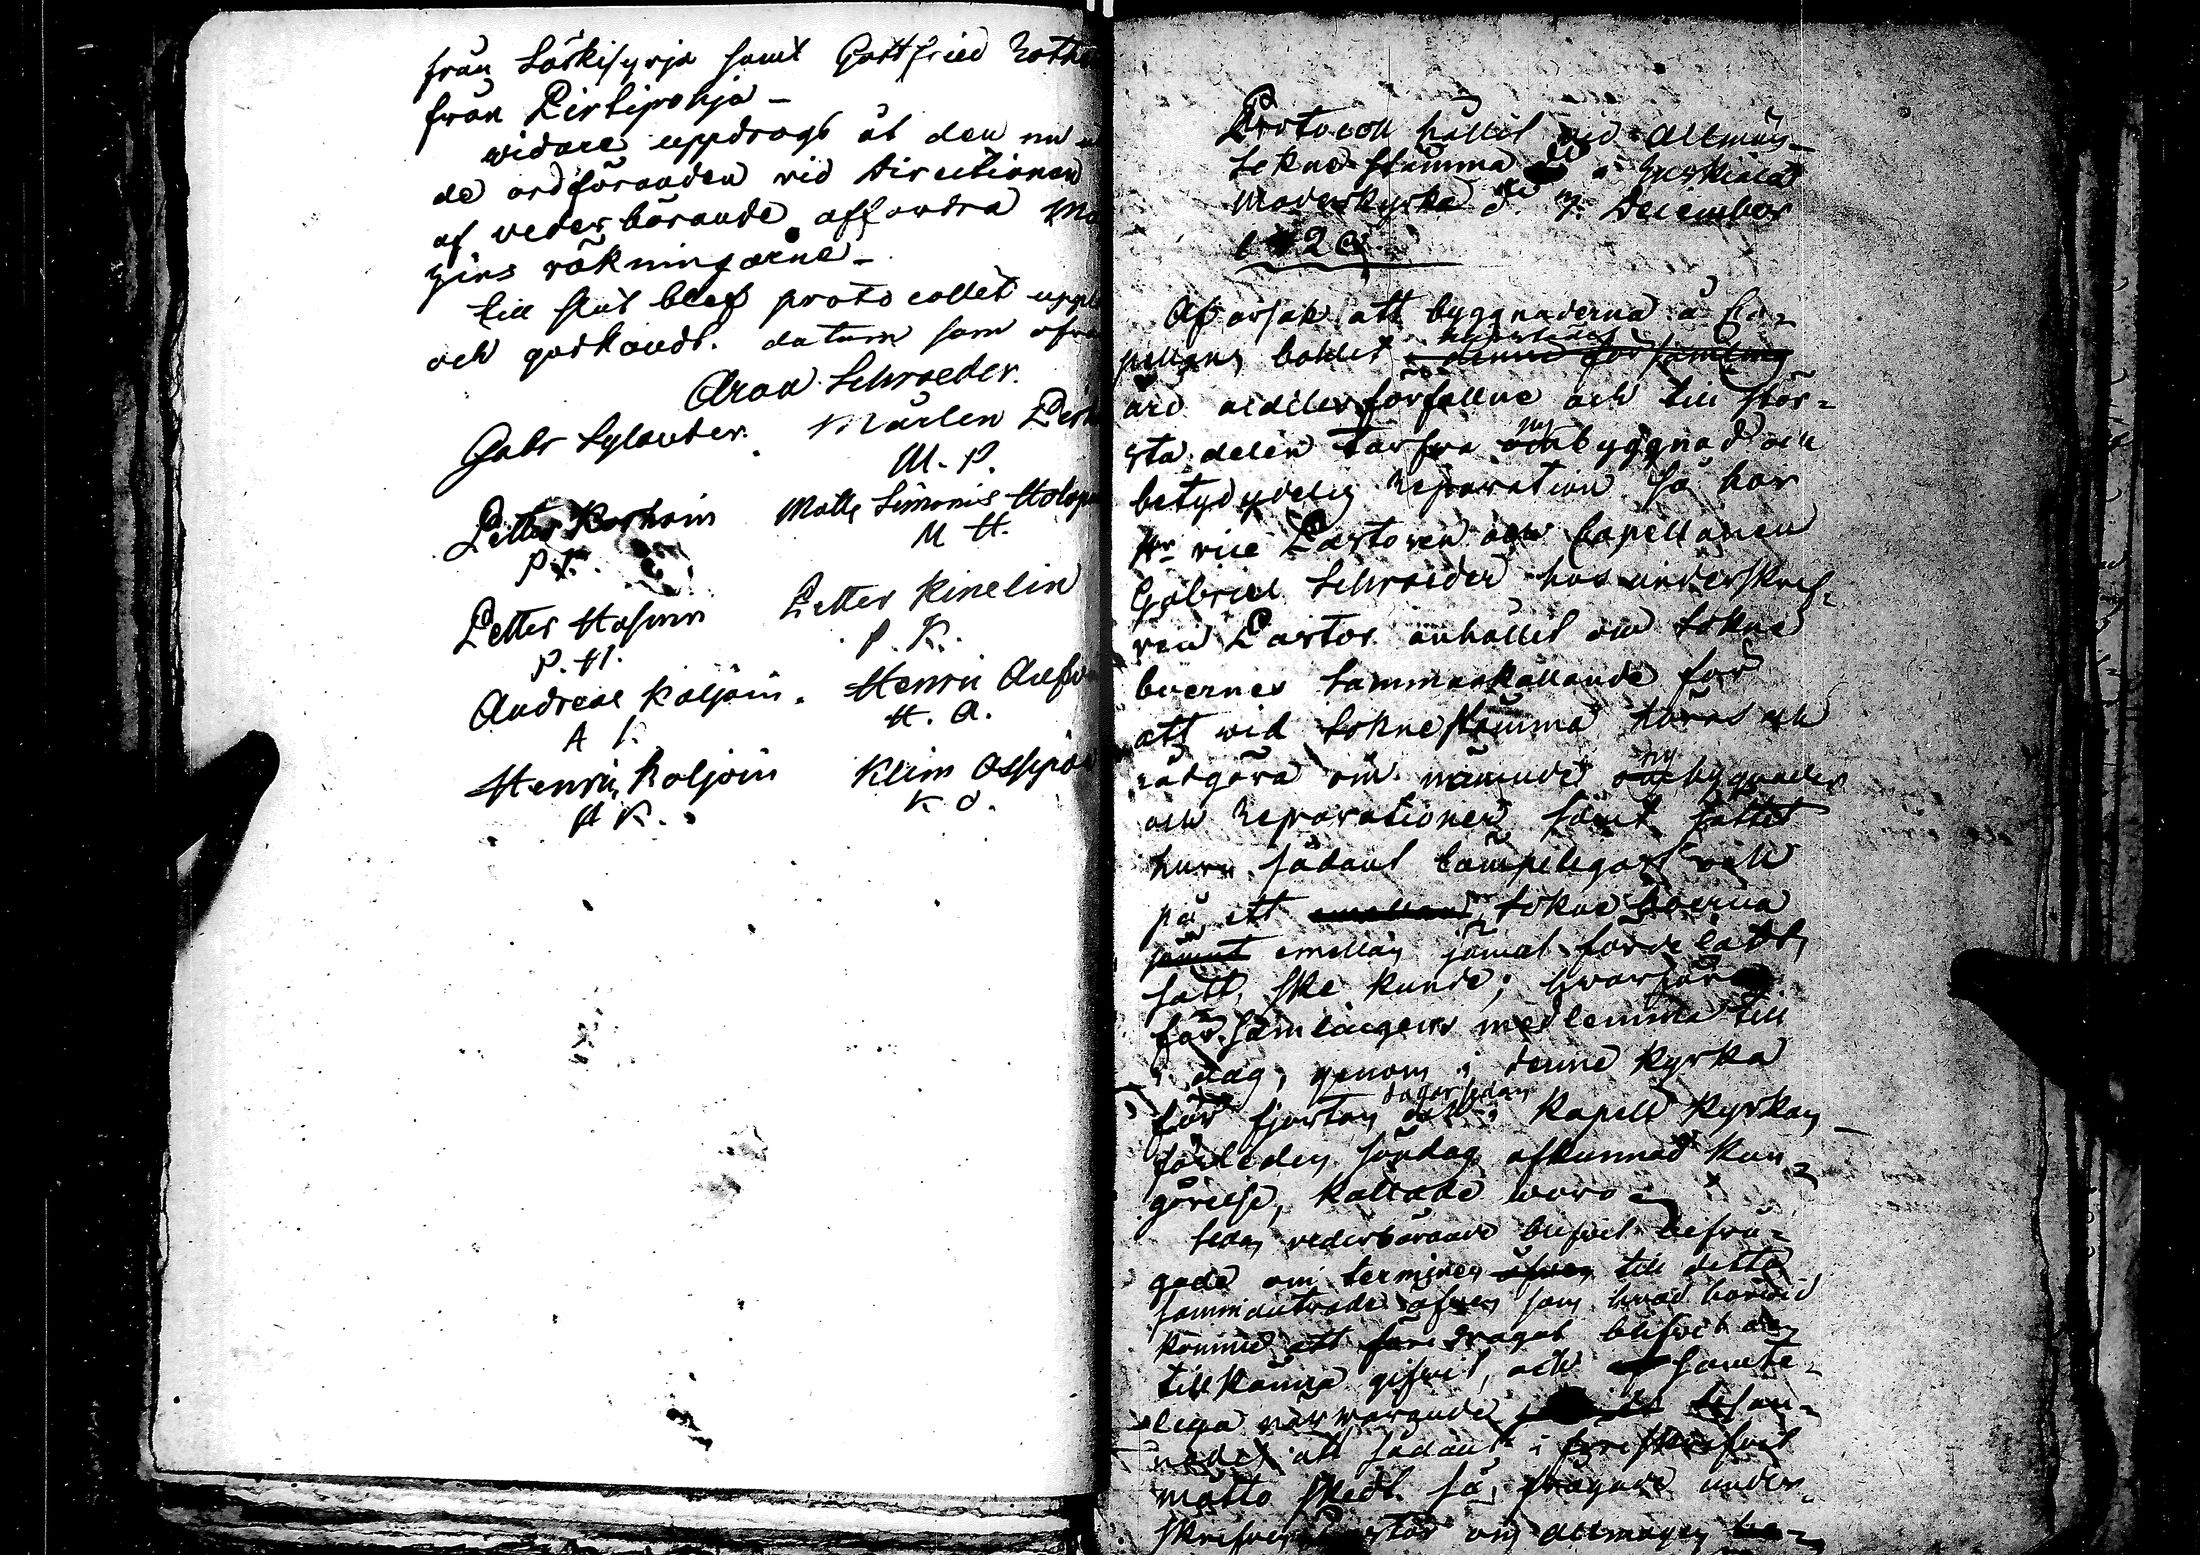 från Särkisyrja samt Gottfried
från Pirtipohja –
widare uppdrogs åt den nu
de ordföranden vid directionen
af vederbörande affordra Ma
zins räkningarne –
till slut blef protocollet uppl
och godkändt. datum som ofva
Aron Schroeder.
Gabr Sylander. Mårten
M. P.
Petter Korhoin Matts Simonis Holop
P. K. M H.
Petter Hosuin Petter Kinelin
P. H. P. K.
Andreas Koljoin. Henric
A K. H. A.
Henric Koljoin Klim Ossipo
H K. K O.
Protocoll hållit vid Allmän
Sokne stämma i
Moderkyrka d. 7 December
182
Af orsak att byggnaderna å Ca-
pellans bohlet i denne församling
äro aldeles förfallne och till stör-
sta delen tarfva ny byggnad och
betydelig Reparation så har
Hr vice Pastoren och Capellanen
Gabriel Schroeder hos underskref-
ven Pastor anhållit om Sokne
boernes sammankallande för
att vid Soknestämma höras och
rådgöra om nämnde ny byggnader
och Reparationer samt sättet
huru sådant lämpeligast och
på ett Sokne boerna
jämt emellan jämt fördeladt
sätt ske kunde; hvarföre
församlingens medlemmar till
i dag, genom i denne kyrka
för fjorton dagar sedan och i Kapell kyrkan
förleden söndag afkunnad kun-
görelse, kallade woro –
Sedan vederbörande blifvit tilfrå-
gade om terminen äfven till detta
sammanträde äfven som hvad härvid
komme att föredragas blifvit dem
tillkänna gifvit, och samte-
liga närvarande besan-
nadet att sådant i föreskrifvit
måtto skedt. så frågade under-
skrefven Pastor om allmogen be-